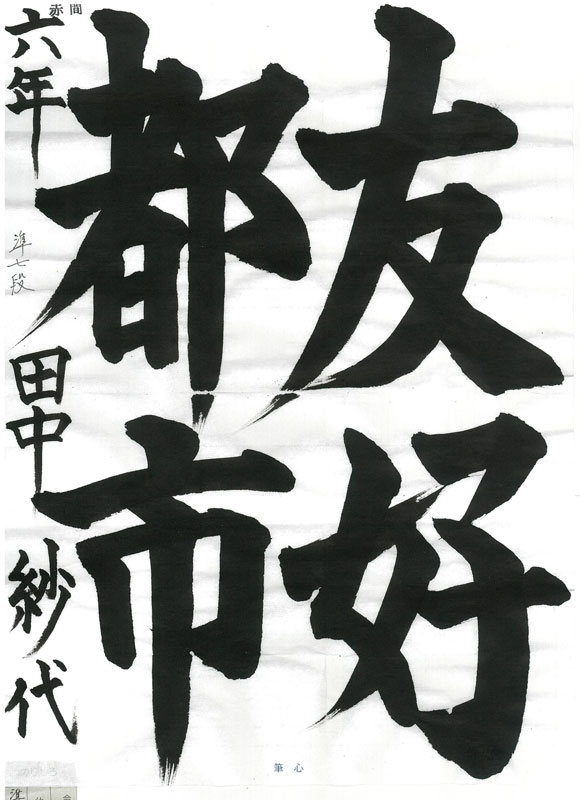 友好
都市
赤間
六年 田中 紗代
準七段
心筆